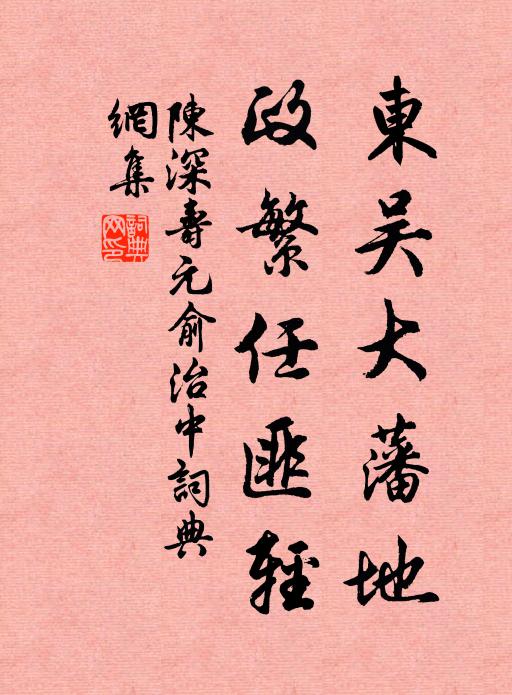 東吴大藩地
政繁任匪輕
陳深壽元俞治中詞典
網集
詞典網印